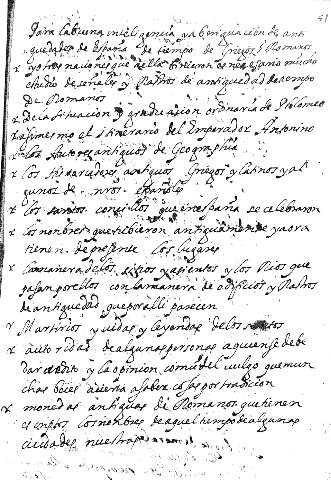 51
Para la buena inteligencia y aberiguacion de ant
quedades de españa de tiempo de Griegos y Romanos
y otras naciones que a ella vinieron es necesario mucho
estudio de señales y Rastros de antiguedad de tiempo
de Romanos
de la situacion y graduacion ordinaria de ptolomeo
asimesmo el Itinerario del Emperador Antonino
los Autores antiguos de Geographia
los historiadores antiguos Griegos y latinos y al
gunos de nros españoles
los santos concilios que en españa se celebraron
los nombres que tubieron antiguamente y aora
tienen de presente los lugares
la manera de los sitios y asientos y los Rios que
pasan por ellos con la manera de edificios y Rastros
de antiguedad que por alli parecen
Martirios y vidas y leyendas de los santos
autoridad de algunas personas a quien se debe
dar credito y la opinion comun del vulgo que mun
chas veces acierta a saber cosas por tradicion
monedas antiguas de Romanos que tienen
escritos los nombres de aquel tiempo de algunas
ciudades nuestras